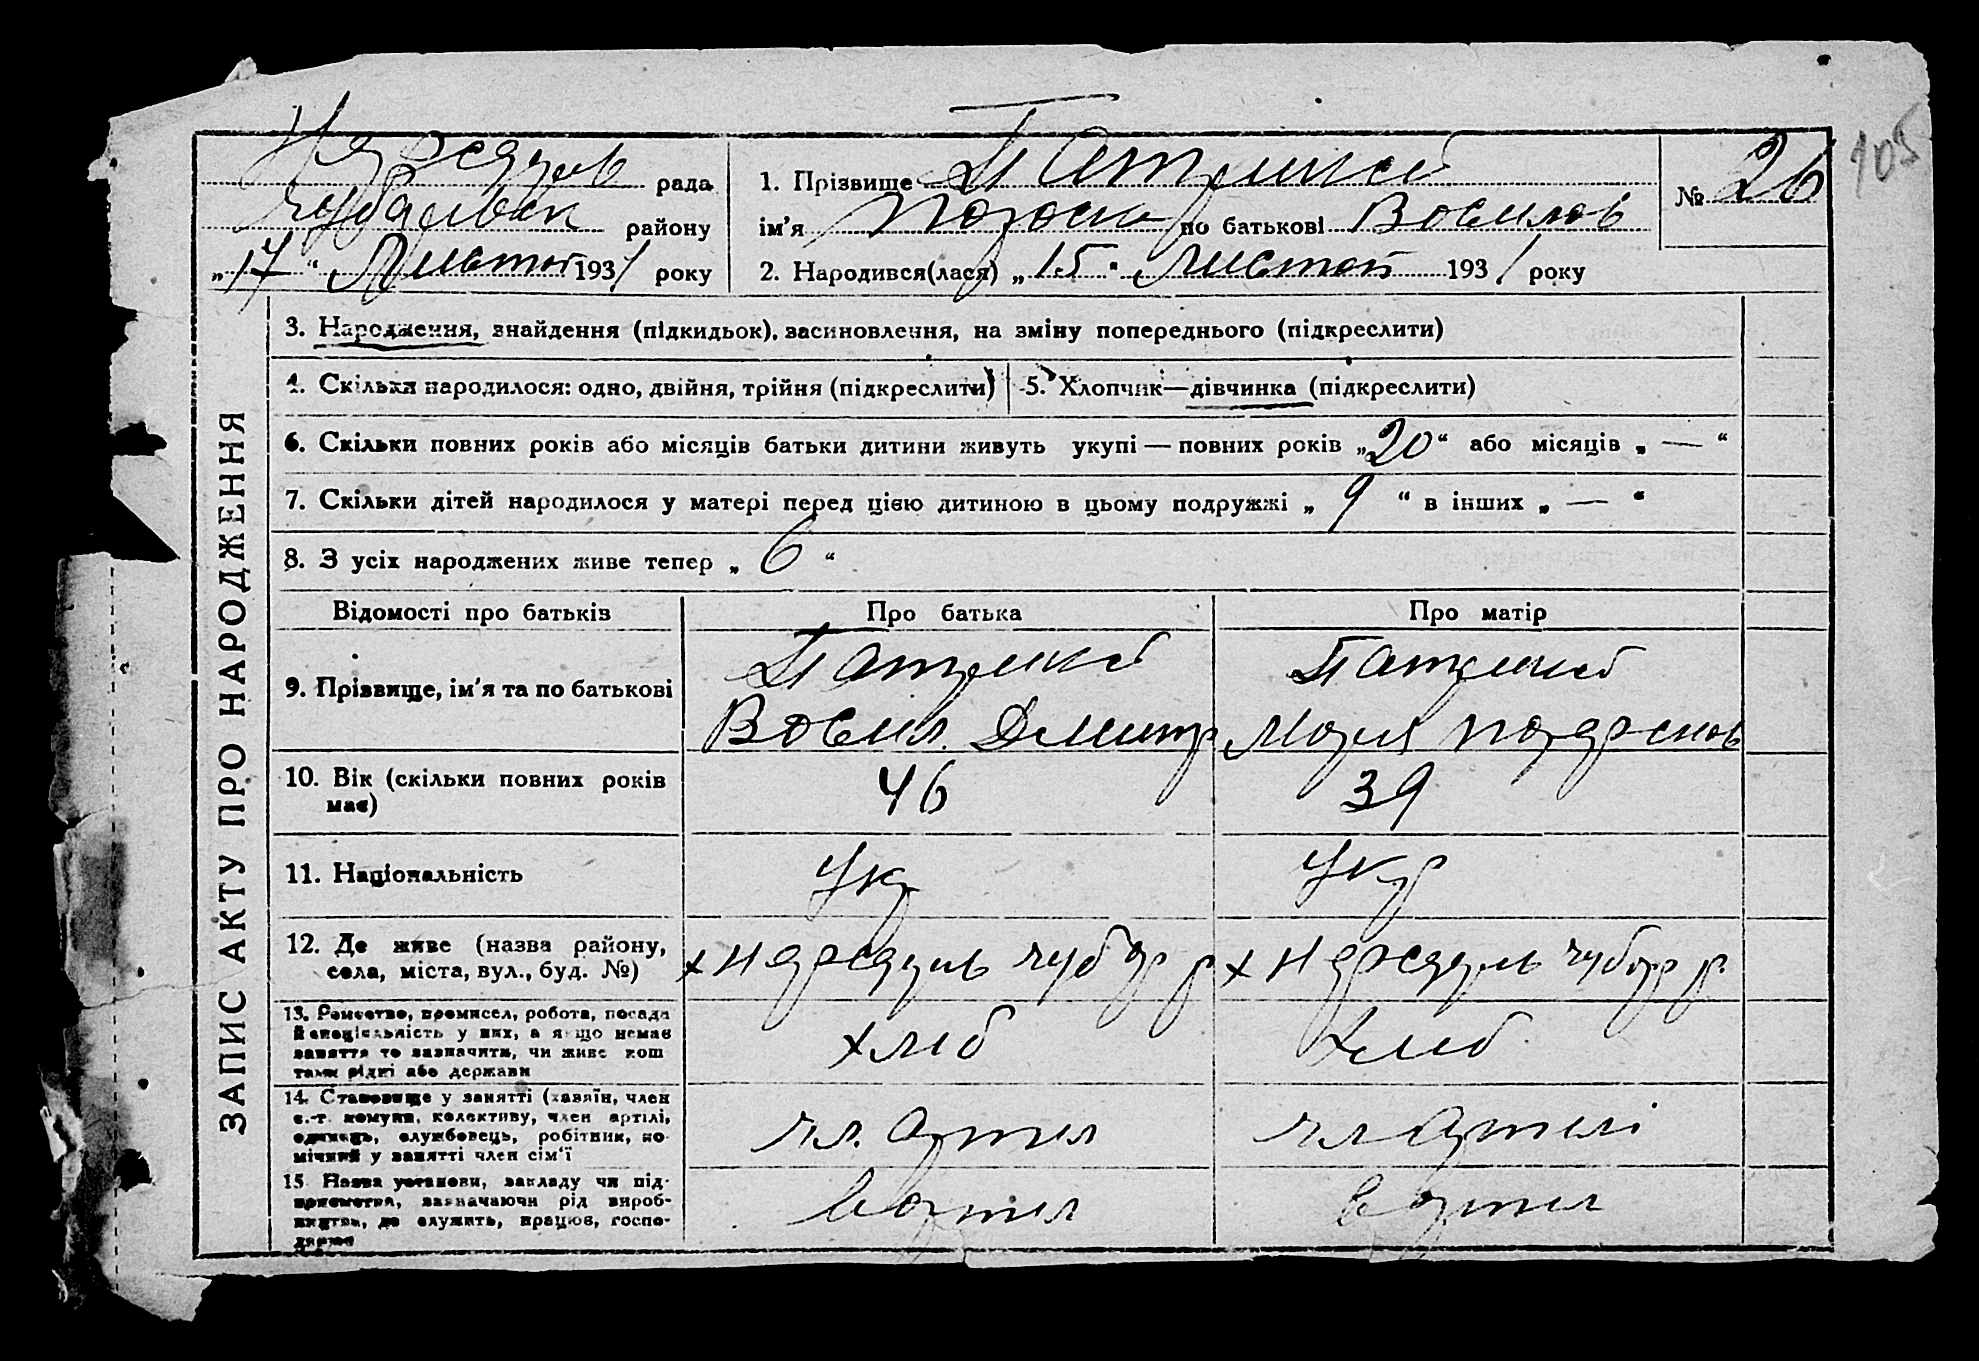 105
рада
1. Прізвище Патрикей
№ 26
району
ім'я по батькові Василов
„17“ Листоп 1931 року
2. Народився(лася) „15“ Листоп 1931 року
ЗАПИС АКТУ ПРО НАРОДЖЕННЯ
3. Народження, знайдення (підкидьок), засиновлення, на зміну попереднього (підкреслити)
4. Скільки народилося: одно, двійня, трійня (підкреслити)
5. Хлопчик—дівчинка (підкреслити)
6. Скільки повних років або місяців батьки дитини живуть укупі — повних років „20“ або місяців „ — “
7. Скільки дітей народилося у матері перед цією дитиною в цьому подружжі „ 9 “ в інших „ — “
8. З усіх народжених живе тепер „ 6 “
Відомості про батьків
Про батька
Про матір
9. Прізвище, ім'я та по батькові
Патрикей
Василь Дмитр
Патрикей
Мария
10. Вік (скільки повних років
має)
46
39
11. Національність
Укр
Укр
12. Де живе (назва району,
села, міста, вул., буд. №)
х чубар р
х чубар р
13. Ремество, промисел, робота, посада
й спеціяльність у них, а якщо немає
заняття то зазначити, чи живе кош
тами рідні або держави
хліб
хліб
14. Становище у занятті (хазяїн, член
с.-г. комуни, колективу, член артілі,
одинець, службовець, робітник, по-
мічний у занятті член сім'ї
чл. артил
чл артілі
15. Назва установи, закладу чи під-
приємства, зазначаючи рід вироб-
ництва, де служить, працює, госпо-
дарює
в артил
в артил